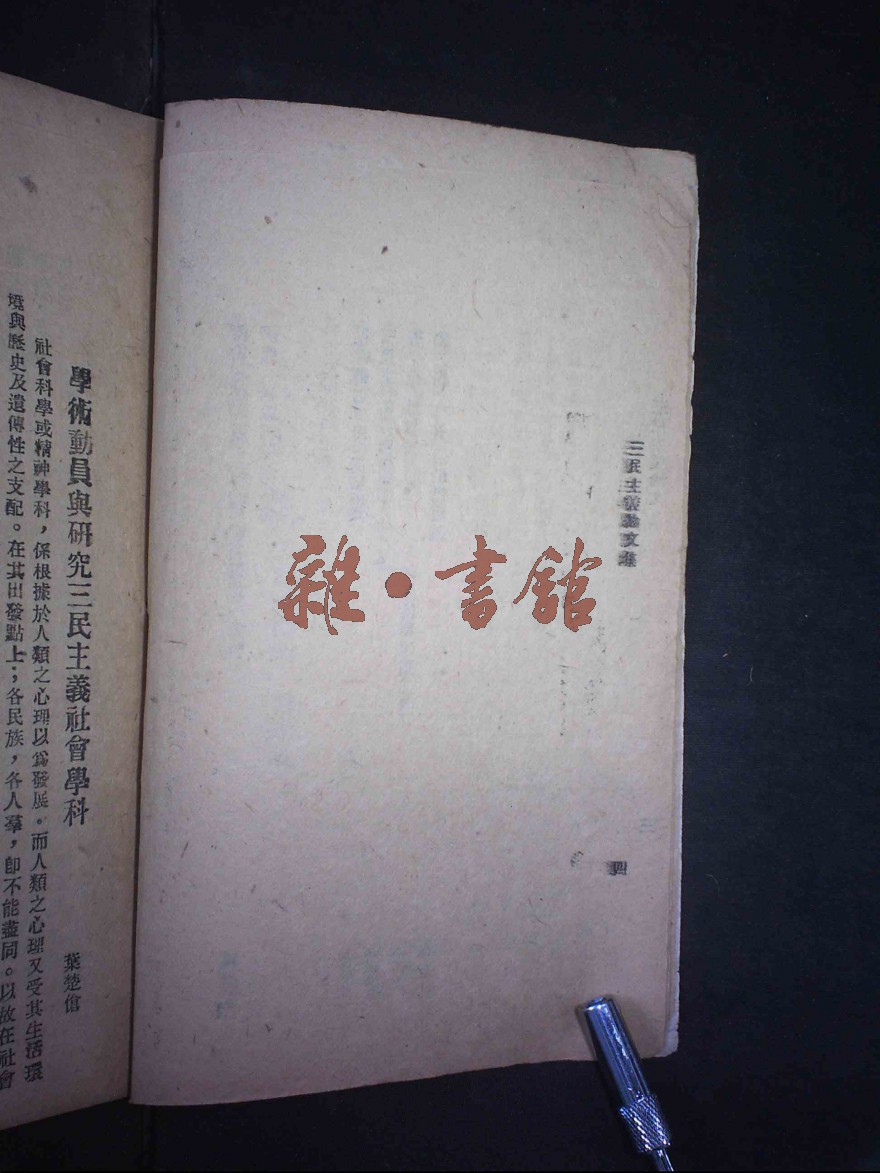 三民主義論文集
四
雜·書館
學術動員與研究三民主義社會學科
葉楚傖
社會科學或精神學科，係根據於人類之心理以爲發展。而人類之心理又受其生活環
境與歷史及遺傳性之支配。在其出發點上；各民族，各人羣，卽不能盡同。以故在社會